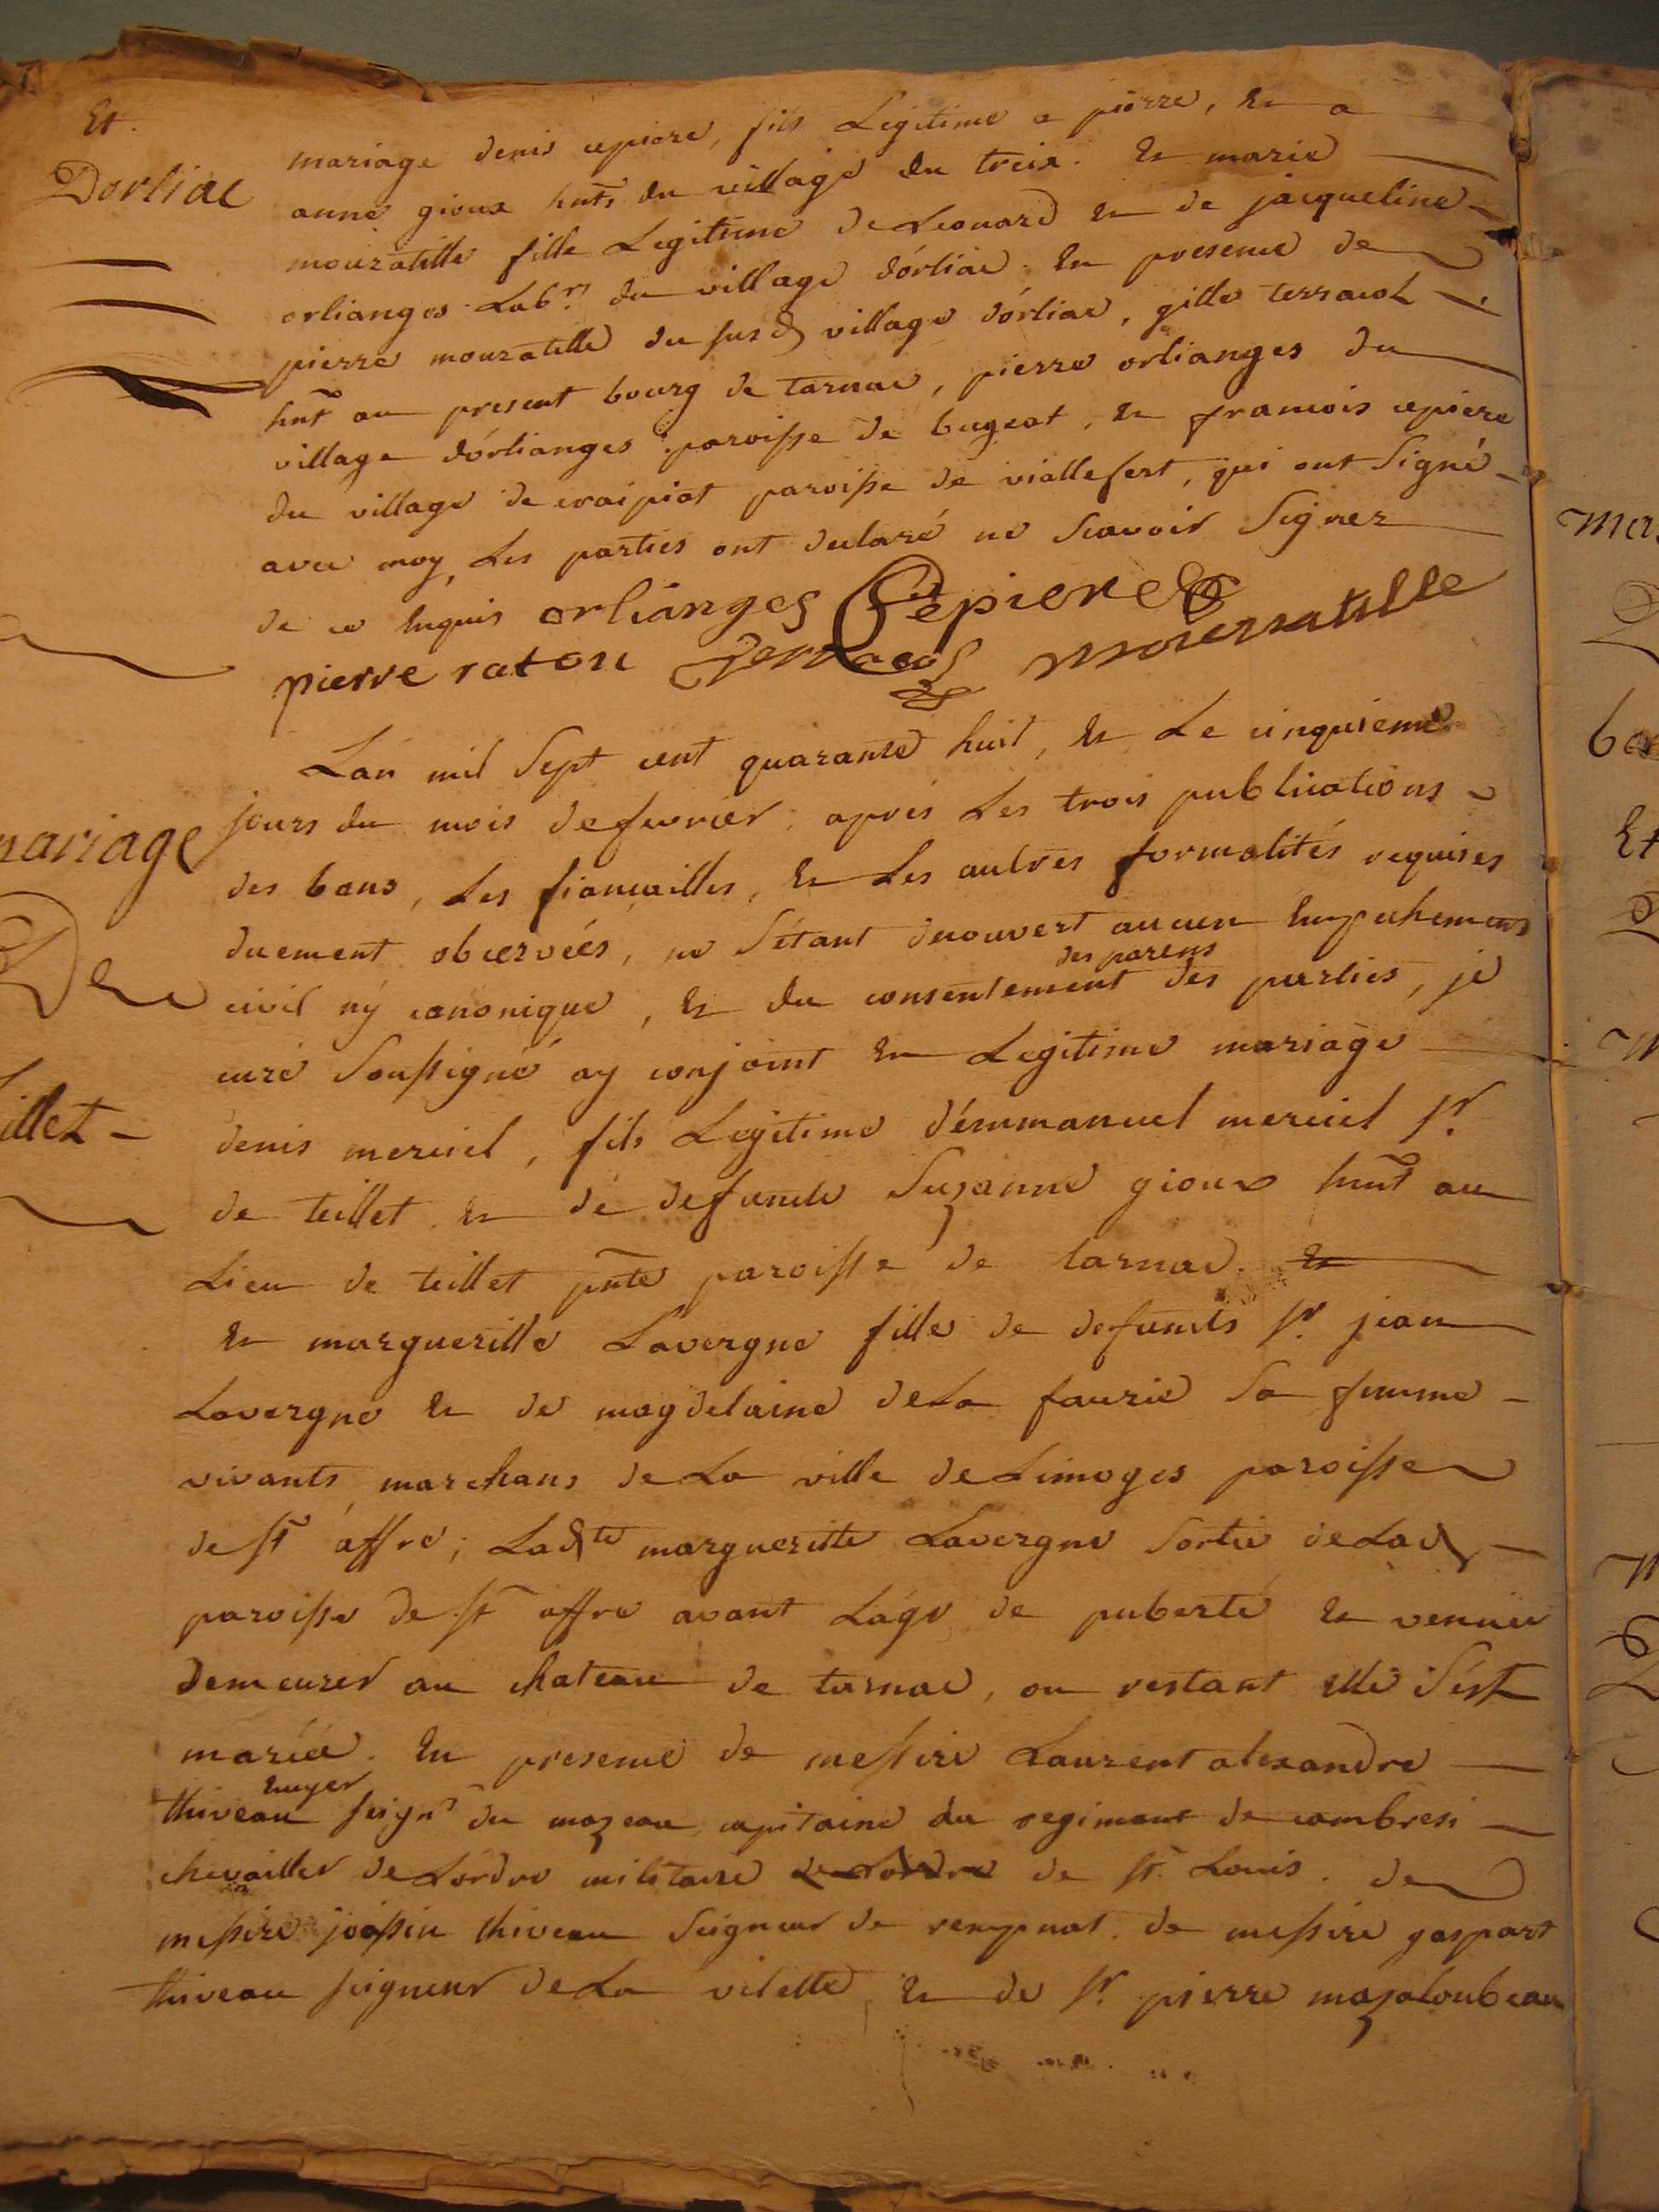 Et
Dorliac
mariage denis cepiere, fils Legitime a pierre, et a
anne gioux hnts du village du treix. Et marie
mouratille fille Legitime de Leonard et de jacqueline
orlianges Labrs du village dórliac. En presence de
pierre mouratille du susd village dórliac, gille terracol
hnt au present bourg de tarnac, pierre orlianges du
village dórlianges paroisse de bugeat, et francois cepiere
du village de paroisse de viallefert, qui ont Signé
avec moy, Les parties ont declaré ne Scavoir Signer
de ce Enquis orlianges Cepiere
pierre raton Terracol mouratille
Lán mil Sept cent quarante huit, et Le cinquieme
jours du mois de fevrier, apres Les trois publications
des bans, Les fiancailles, et Les autres formalités requises
duement observées, ne S'étant decouvert aucun Empechemens
des parens
civil ny canonique, et du consentement des parties, je
curé Soussigné ay conjoint en Legitime mariage
denis merciel, fils Legitime d'émmanuel merciel sr.
de teillet et de defuncte Suzanne gioux hnt au
Lieu de teillet pnte paroisse de tarnac. et
et margueritte Lavergne fille de defuncts sr. jean
Lavergne et de magdelaine de La faurie Sa femme
vivants marchans de La ville de Limoges paroisse
de st affre; Ladte margueritte Lavergne Sortie de Lad
paroisse de st affre avant Láge de puberté et venue
demeurer au chateau de tarnac, ou restant elle S'ést
mariée. En presence de messire Laurent alexandre
Ecuyer
thiveau seignr du mazeau capitaine du regiment de cambresi
chevallier de Lordre militaire de Lordre de st. Louis. de
messire thiveau Seigneur de rempnat. de messire gaspart
thiveau seigneur de La vilette, et de sr. pierre mazaloubeau
mariage
De
illet